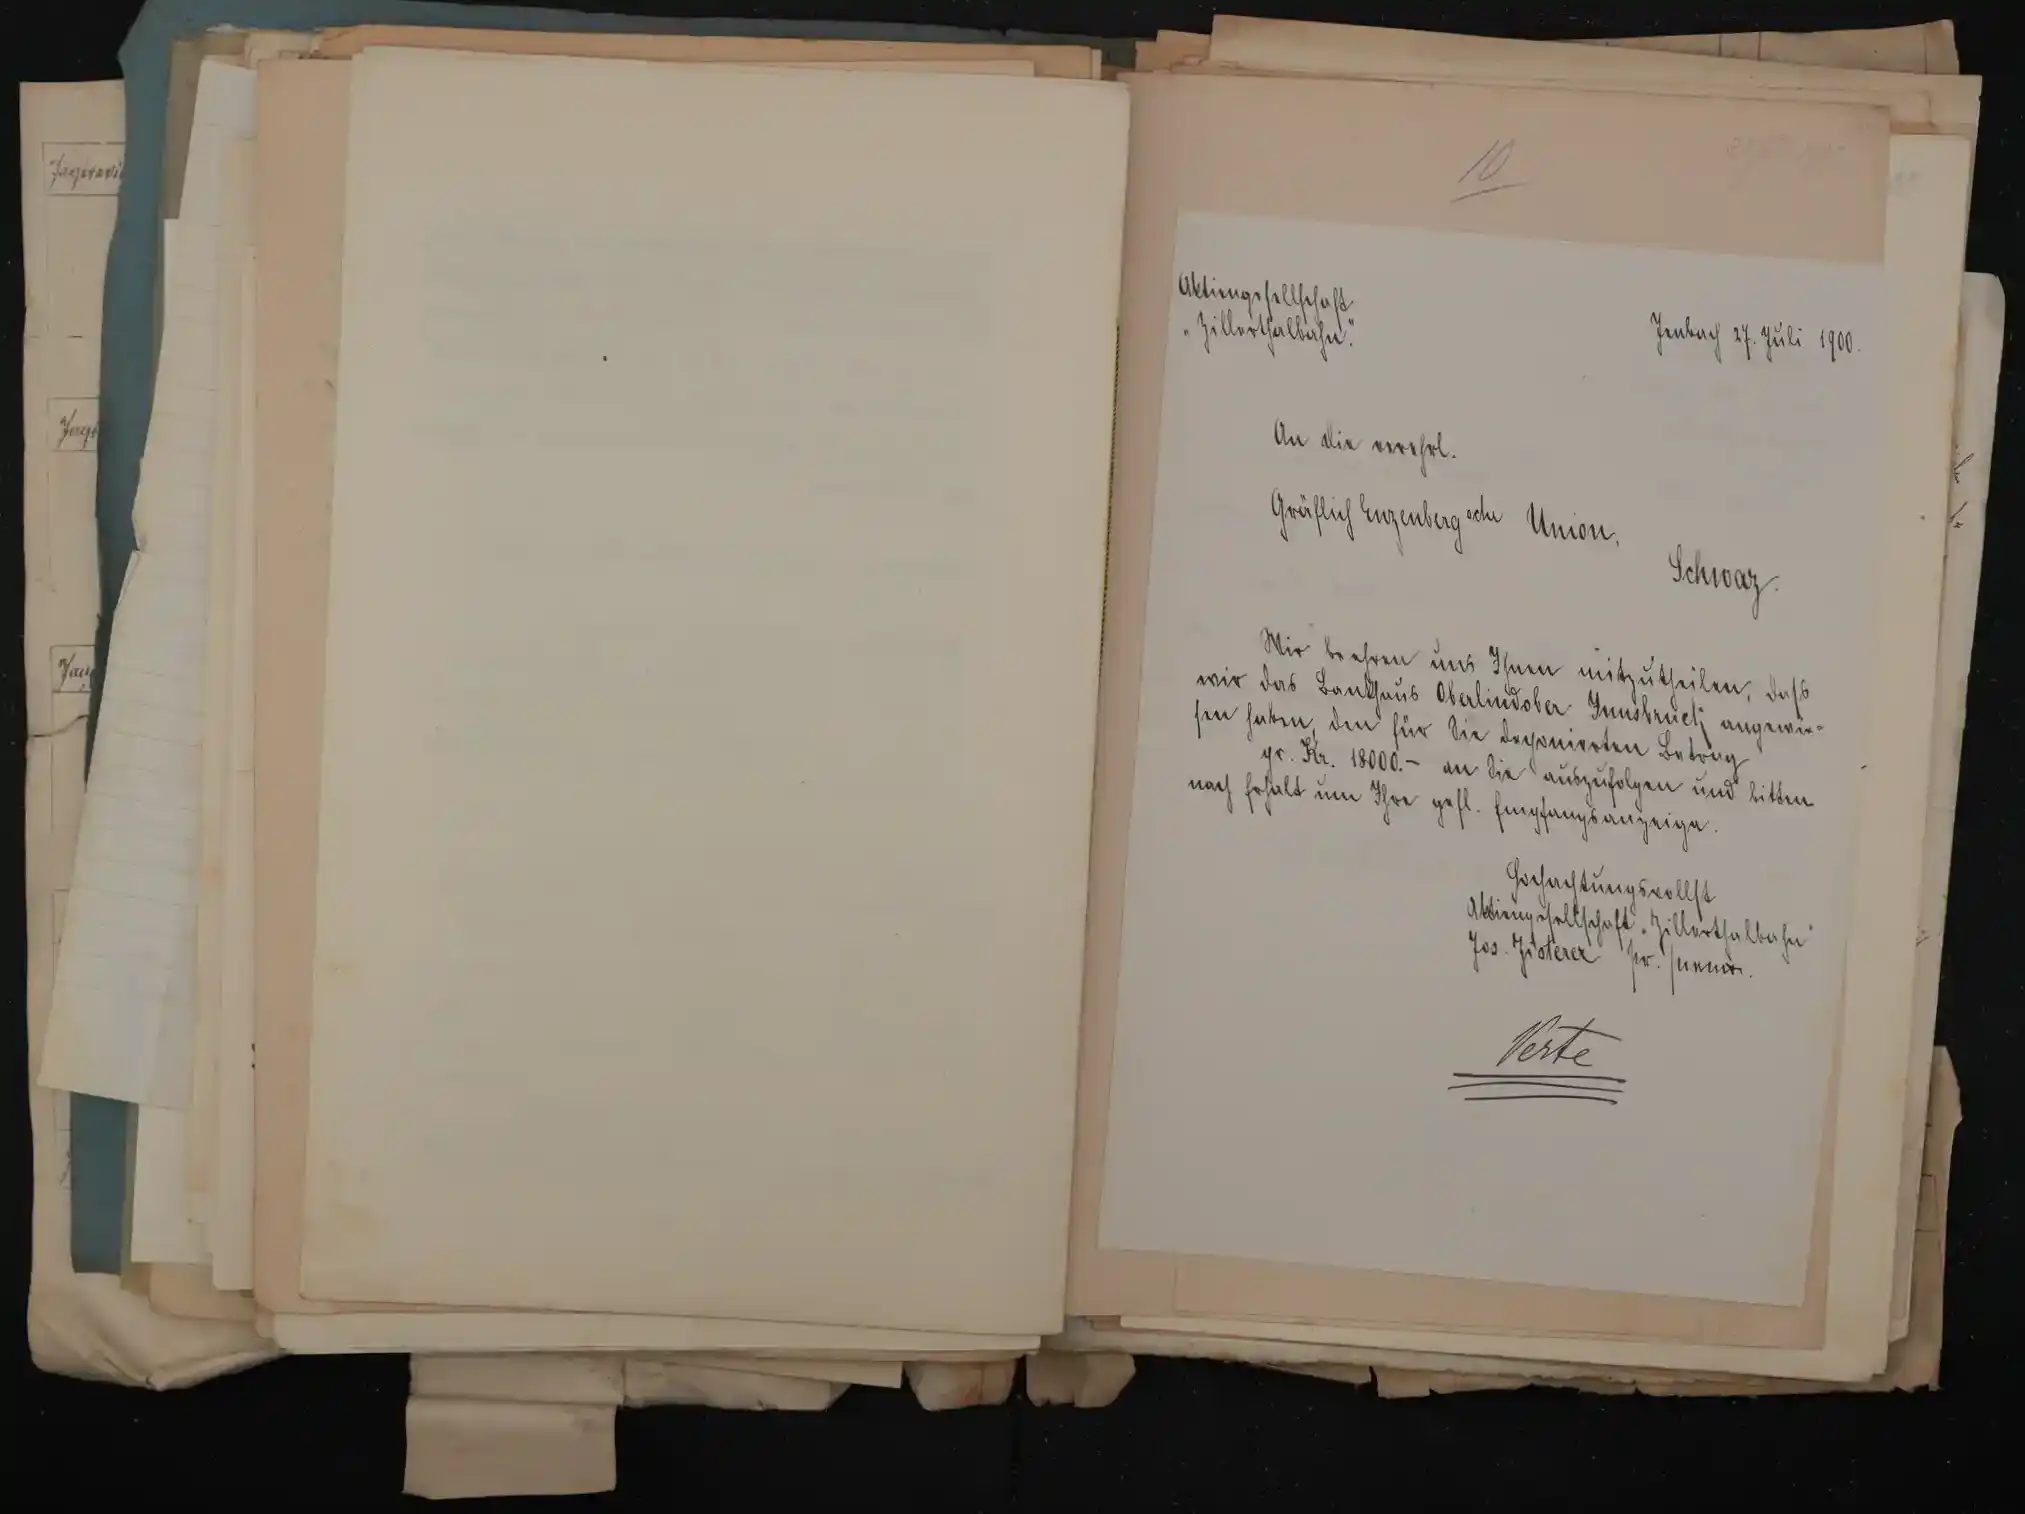 10
Aktiengesellschaft
"Zillerthalbahn".
Jenbach 27. Juli 1900.
An die verehrl.
Gräflich Enzenberg'sche Union,
Schwaz.
Wir beehren uns Ihnen mitzutheilen, dass
wir das Bankhaus Oberlindober Innsbruck angewie-
sen haben, den für Sie deponierten Betrag
pr. Kr. 18000.- an Sie auszufolgen und bitten
nach Erhalt um Ihre gefl. Empfangsanzeige.
Hochachtungsvollst
Aktiengesellschaft "Zillerthalbahn"
Jos. Fisterer
Verte